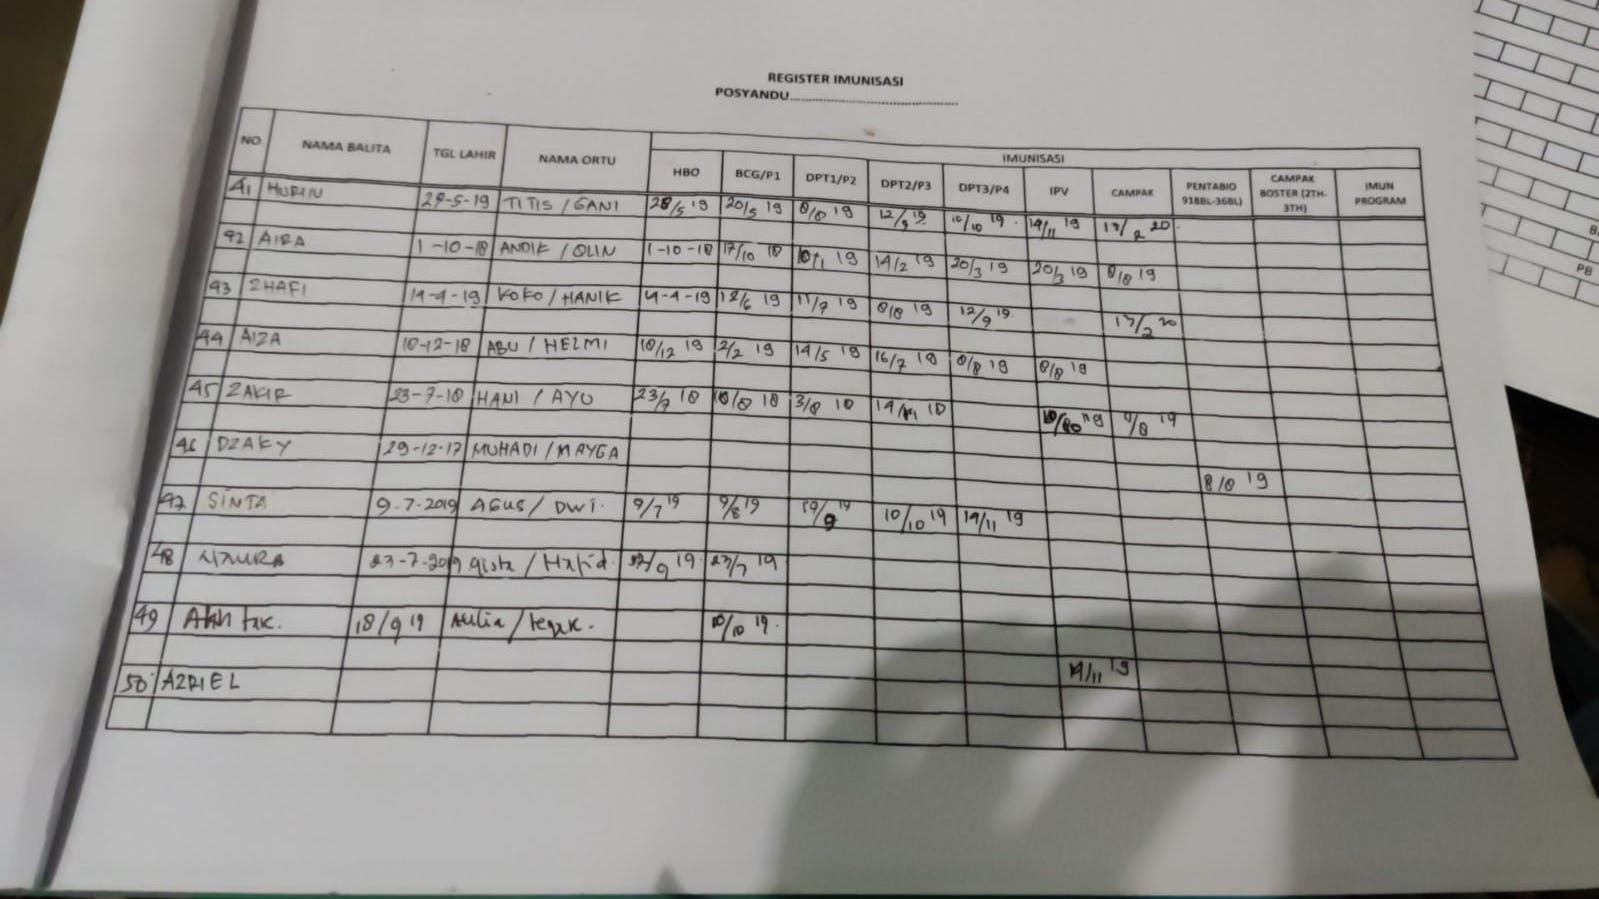 REGISTER IMUNISASI
POSYANDU
NO NAMA BALITA TGL LAHIR NAMA ORTU IMUNISASI
HBO BCG/P1 DPT1/P2 DPT2/P3 DPT3/P4 IPV CAMPAK PENTABIO 918BL-36BL) CAMPAK BOSTER (2TH-3TH) IMUN PROGRAM
41 29-5-19 TITIS / GANI 28/5 19 20/5 19 8/8 19 12/9 19 10/10 19 14/11 19 13/2 20
42 AIRA 1-10-18 ANDIK / OLIN 1-10-18 17/10 18 10/1 19 14/2 19 20/3 19 20/3 19 8/8 19
43 ZHAFI 14-4-19 KOKO / HANIK 4-4-19 12/6 19 11/7 19 8/8 19 12/9 19 13/2 20
44 AIZA 18-12-18 ABU / HELMI 18/12 19 2/2 19 14/5 19 16/7 18 8/8 19 8/8 19
45 ZAKIR 23-7-18 HANI / AYU 23/7 18 18/8 18 3/8 18 14/11 18 9/8 19
46 DZAKY 29-12-17 MUHADI / MAYGA 8/8 19
47 SINTA 9-7-2019 AGUS / DWI 9/7 19 9/8 19 10/10 19 14/11 19
48 23-7-2019 23/7 19
49 18/9 19 10/10 19
50 AZRIEL 14/11 19
PB